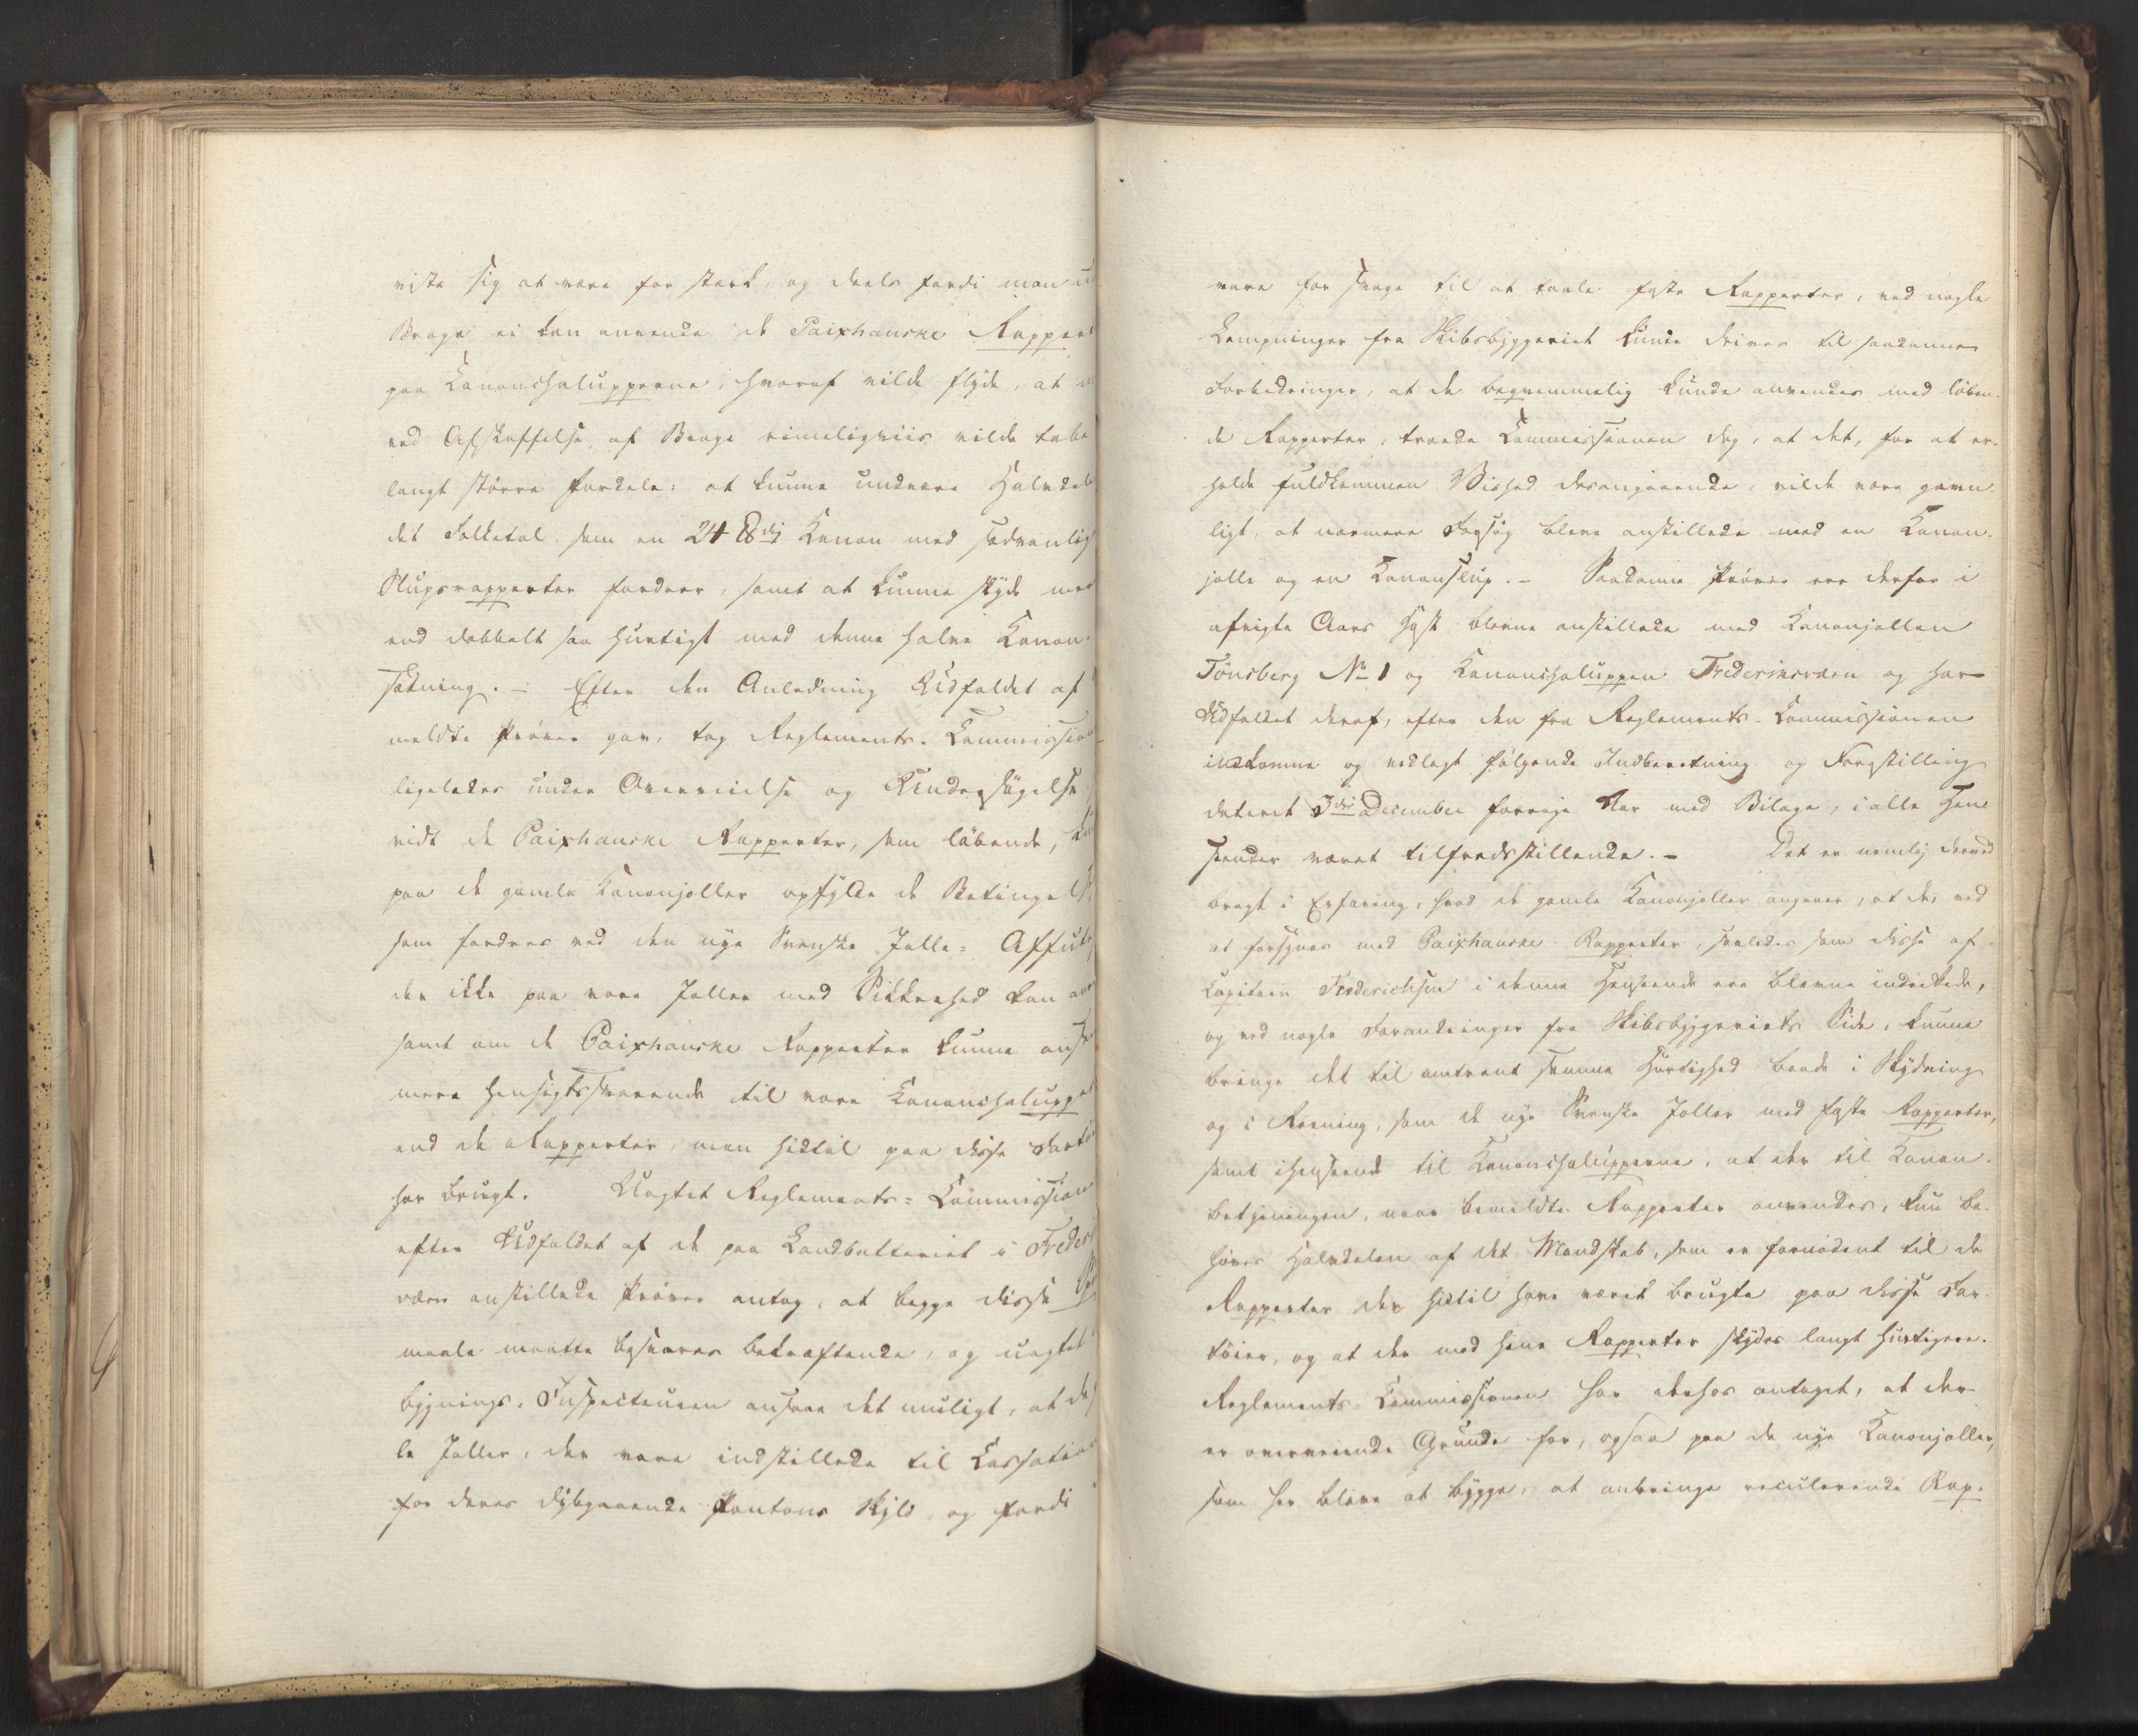 viste sig at være for stærk, og deels fordi man
Brage ei kan anvende de Paixhanske Rappert
paa Kanonchalupperne, hvoraf vilde flyde, at
ved Afskaffelse af Brage rimeligviis vilde tabe
langt større Fordele: at kunne undvære Halvdele
det Folketal, som en 24 ℔dig Kanon med sædvanlig
Slupsrapperter fordrer, samt at kunne skyde mer
end dobbelt saa hurtigt med denne halve Kanon-
sætning. — Efter den Anledning Udfaldet af
meldte Prøver gav, tog Reglements-Commission
ligeledes under Overveielse og Undersøgelse
vidt de Paixhanske Rapperter, som løbende,
paa de gamle Kanonjoller opfylde de Betingels
som fordres ved den nye Svenske Jolle-Affut
der ikke paa vore Joller med Sikkerhed kan
samt om de Paixhanske Rapperter kunne ans
mere hensigtssvarende til vore Kanonchalupp
end de Rapperter man hidtil paa disse Fartø
har brugt. Uagtet Reglements-Commission
efter Udfaldet af de paa Landbatteriet i Freder
værn anstillede Prøver antog, at begge disse
maale maatte besvares bekræftende, og uagtet
bygnings-Inspecteuren ansaae det muligt, at de
le Joller, der vare indstillede til Cassation
for deres dybgaaende Pontons Skyld, og fordi
vare for svage til at taale faste Rapperter, ved nogle
Lempninger fra Skibsbyggeriet kunde drives til saadanne
Forbedringer, at de beqvemmelig kunde anvendes med løben-
de Rapperter, troede Commissionen dog, at det, for at er-
holde fuldkommen Vished desangaaende, vilde være gavn-
ligt, at nærmere Forsøg bleve anstillede med en Kanon-
jolle og en Kanonslup. — Saadanne Prøver ere derfor i
afvigte Aars Høst blevne anstillede med Kanonjollen
Tønsberg No 1 og Kanonchaluppen Frederiksværn og har
Udfaldet deraf, efter den fra Reglements-Commissionen
indkomne og vedlagt følgende Indberetning og Forestilling
dateret 3die December forrige Aar med Bilage, i alle Hen-
seender været tilfredsstillende. — Det er nemlig derved
bragt i Erfaring, hvad de gamle Kanonjoller angaaer, at de, ved
at forsynes med Paixhanske Rapperter, saaledes som disse af
Capitain Frederichsen i denne Henseende ere blevne indrettede,
og ved nogle Forandringer fra Skibsbyggeriets Side, kunne
bringe det til omtrent samme Hurtighed baade i Skydning
og i Roening, som de nye Svenske Joller med faste Rapperter,
samt i henseende til Kanonchalupperne, at der til Kanon-
betjeningen, naar bemeldte Rapperter anvendes, kun be-
høves Halvdelen af det Mandskab, som er fornødent til de
Rapperter der hidtil have været brugte paa disse Far-
tøier, og at der med hine Rapperter skydes langt hurtigere.
Reglements-Commissionen har derhos antaget, at der
er overveiende Grunde for, ogsaa paa de nye Kanonjoller,
som her bleve at bygge, at anbringe reculerende Rap-